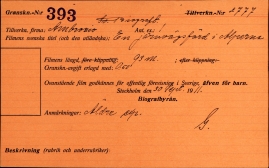 Gransknr.-N:r 393 Tillverkn.-N:r 2777
Tillverkn. firma: Ambrosio
Filmens svenska titel (och den utländska): En järnvägsfärd i Alperna
Filmens längd, före klippning: 93 m. ; efter klippning:
Gransknr.-avgift erlagd med:
Ovanstående film godkännes för offentlig förevisning i Sverige, äfven för barn.
Stockholm den 30 1911.
Biografbyrån.
Anmärkningar: Äldre
G.
Beskrifning (rubrik och underrubriker):